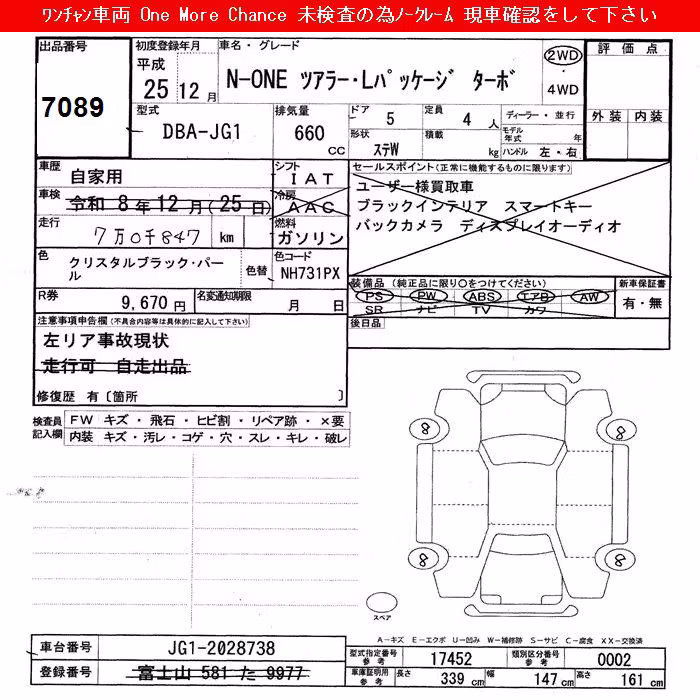 ﾜﾝﾁｬﾝ車両 One More Chance 未検査の為ﾉｰｸﾚｰﾑ 現車確認をして下さい
出品番号
7089
初度登録年月
平成
25 12 月
車名・グレード
N-ONE ツアラー・Lパッケージ ターボ
2WD
・
4WD
評価点
外装 内装
型式
DBA-JG1
排気量
660
CC
ドア
5
定員
4 人
形状
ステW
積載
kg
ディーラー・並行
モデル年式 年
ハンドル 左・右
車歴
自家用
シフト
IAT
車検
令和 8年 12月(25日)
冷房
AAC
走行
7万0千847 km
燃料
ガソリン
色
クリスタルブラック・パール
色替
色コード
NH731PX
R券
9,670 円
名変通知期限
月 日
セールスポイント(正常に機能するものに限ります)
ユーザー様買取車
ブラックインテリア スマートキー
バックカメラ ディスプレイオーディオ
装備品(純正品に限り○をつけてください)
PS PW ABS エアB AW
SR ナビ TV カワ
新車保証書
有・無
後日品
注意事項申告欄(不具合内容等は具体的に記入して下さい)
左リア事故現状
走行可 自走出品
修復歴 有〔箇所 〕
検査員記入欄
FW キズ・飛石・ヒビ割・リペア跡・×要
内装 キズ・汚レ・コゲ・穴・スレ・キレ・破レ
8
8
8
8
スペア
A-キズ E-エクボ U-凹み W-補修跡 S-サビ C-腐食 XX-交換済
車台番号
JG1-2028738
登録番号
富士山 581 た 9977
型式指定番号
参考
17452
類別区分番号
参考
0002
車庫証明記入
参考
長さ
339 cm
幅
147 cm
高さ
161 cm